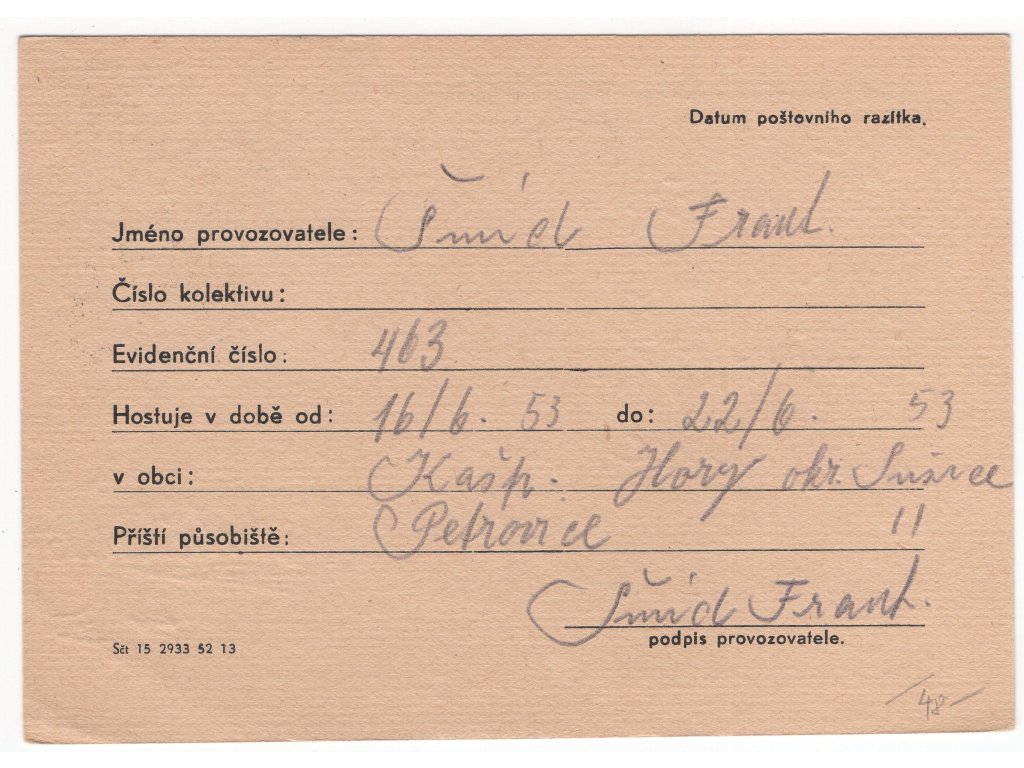 Datum poštovního razítka.
Jméno provozovatele: Šmíd Frant.
Číslo kolektivu:
Evidenční číslo: 463
Hostuje v době od: 16/6. 53 do: 22/6. 53
v obci: Kašp. Hory okr. Sušice
Příští působiště: Petrovice "
Šmíd Frant.
podpis provozovatele.
Sčt 15 2933 52 13
48